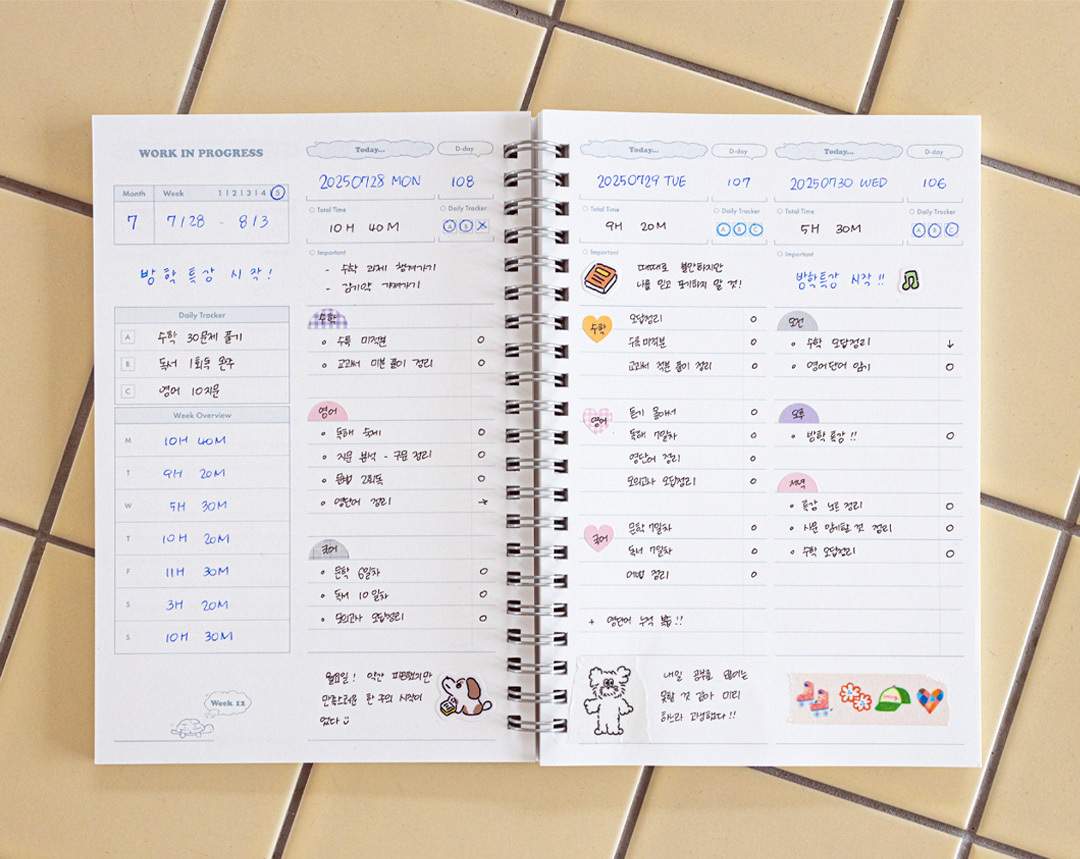 WORK IN PROGRESS
Month Week 1 2 3 4 5
7 7/28 - 8/3
방학특강 시작!
Daily Tracker
A 수학 30문제 풀기
B 독서 1회독 완주
C 영어 10지문
Week Overview
M 10H 40M
T 9H 20M
W 5H 30M
T 10H 20M
F 11H 30M
S 3H 20M
S 10H 30M
Week 12
Today... D-day
20250728 MON 108
Total Time Daily Tracker
10H 40M A B
Important
- 수학 과제 챙겨가기
- 감기약 가져가기
수학
수특 미적편 O
교과서 미분 풀이 정리 O
영어
독해 숙제 O
지문 분석 - 구문 정리 O
문법 2회독 O
영단어 정리 →
국어
문학 6일차 O
독서 10일차 O
모의고사 오답정리 O
월요일! 약간 피곤했지만
만족스러운 한 주의 시작이
었다
Today... D-day
20250729 TUE 107
Total Time Daily Tracker
9H 20M A B C
Important
때때로 불안하지만
나를 믿고 포기하지 말 것!
수학
오답정리 O
수특 미적분 O
교과서 적분 풀이 정리 O
영어
듣기 몰아서 O
독해 7일차 O
영단어 정리 O
모의고사 오답정리 O
국어
문학 7일차 O
독서 7일차 O
어법 정리 O
+ 영단어 누적 복습!!
내일 공부를 많이는
못할 것 같아 미리
하느라 고생했다!!
Today... D-day
20250730 WED 106
Total Time Daily Tracker
5H 30M A B C
Important
방학특강 시작!!
오전
수학 오답정리 ↓
영어단어 암기 O
오후
방학특강!! O
저녁
특강 노트 정리 O
시문 암기할 것 정리 O
수학 오답정리 O